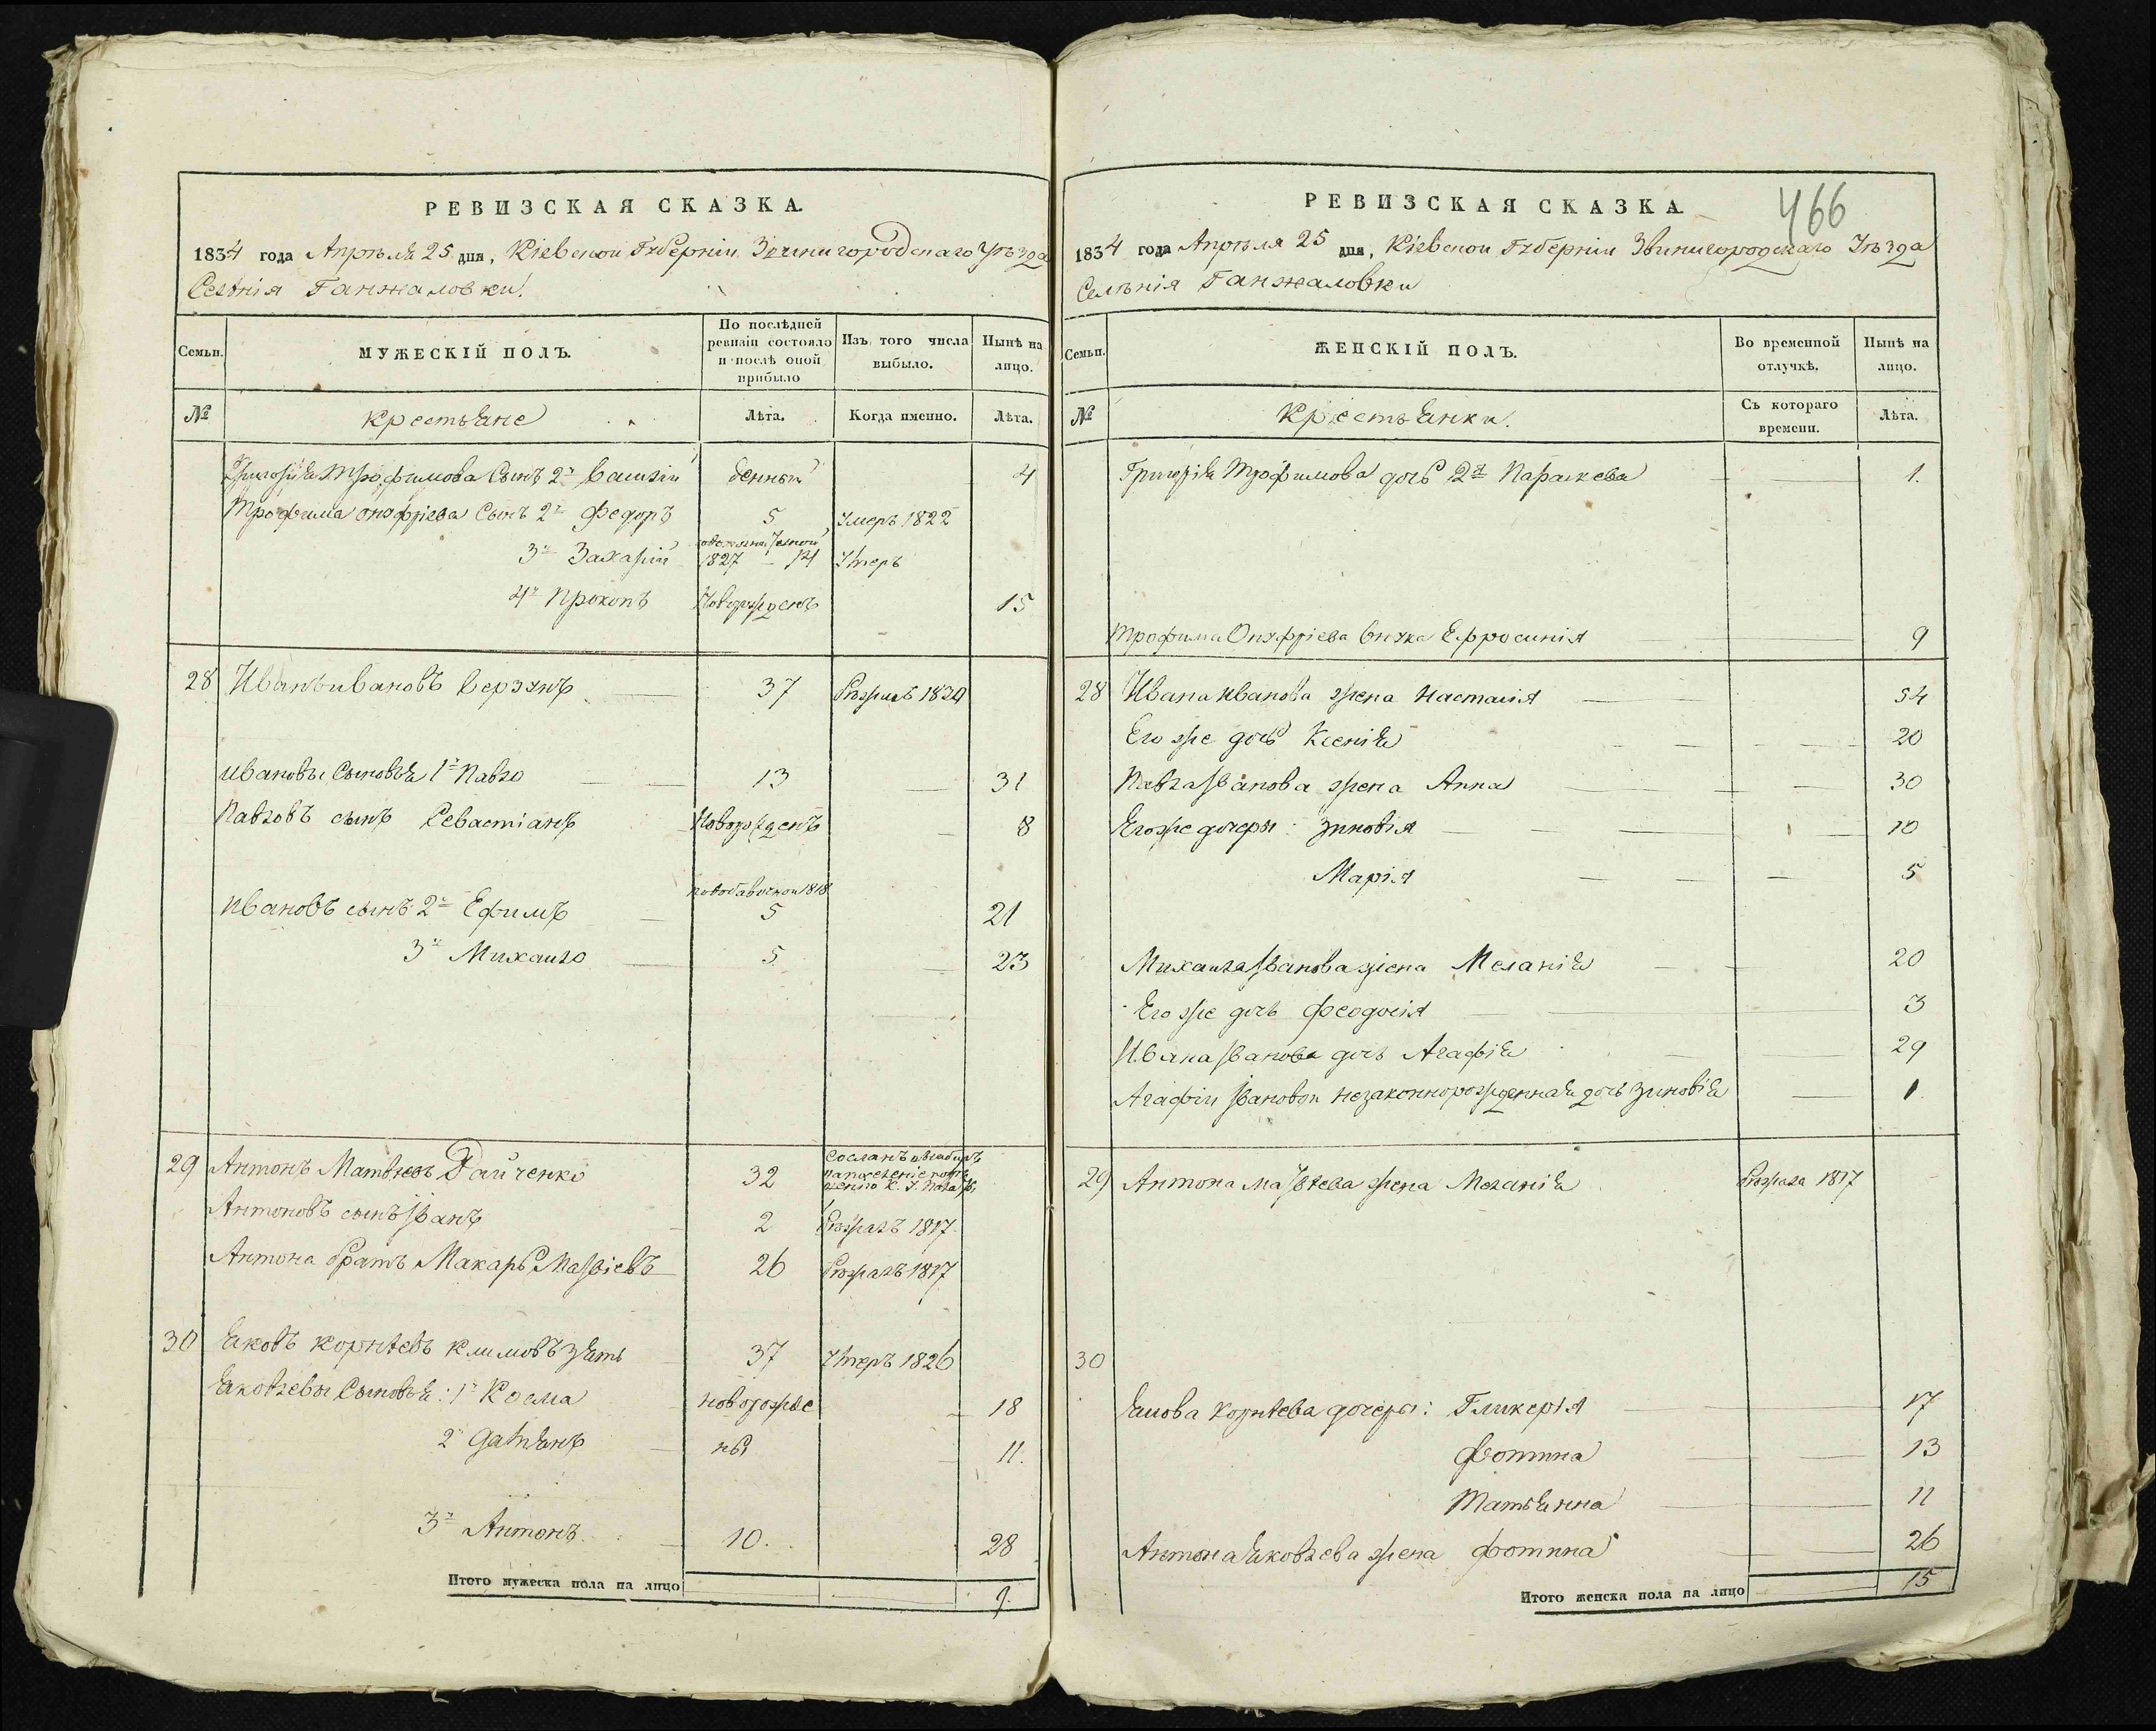 РЕВИЗСКАЯ СКАЗКА.
1834 года Апрѣля 25 дня, Кіевской Губерніи Звинигородскаго Уѣзда
Селѣнія Ганжаловки.
Семьи.
МУЖЕСКІЙ ПОЛЪ.
По послѣдней ревизіи состояло и послѣ оной прибыло
Изъ того числа выбыло.
Нынѣ на лицо.
№
крестьяне
Лѣта.
Когда именно.
Лѣта.
Григорія Трофимова Сынъ 2й Василій денный 4
Трофима Онуфріева Сынъ 2й Федоръ 5 Умеръ 1822
3й Захарій 1827 14 Умеръ
4й Прокопъ Новорожденъ 15
28 Иванъ Ивановъ Верзунъ 37
Ивановы Сыновья 1й Павло 13 31
Павловъ сынъ Севастіанъ Новорожденъ 8
1818
Ивановъ сынъ 2й Ефимъ 5 21
3й Михайло 5 23
29 Антонъ Матвѣевъ 32 Сосланъ
Антоновъ сынъ Иванъ 2 1817
Антона братъ Макаръ Матвіевъ 26 1817
30 Яковъ Корнѣевъ Климовъ зять 37 Умеръ 1826
Яковлевы Сыновья: 1й Косма новорожде 18
2й Даміянъ ны 11.
3й Антонъ 10. 28
Итого мужеска пола на лицо 9.
РЕВИЗСКАЯ СКАЗКА
466
1834 года Апрѣля 25 дня, Кіевской Губерніи Звинигородскаго Уѣзда
Селѣнія Ганжаловки
Семьи.
ЖЕНСКІЙ ПОЛЪ.
Во временной отлучкѣ.
Нынѣ на лицо.
№
Крестьянки.
Съ котораго времени.
Лѣта.
Григорія Трофимова дочь 2я Параскева 1.
Трофима Онуфріева внука Ефросинія 9
28 Ивана Иванова жена Настасія 54
Его же дочь Ксенія 20
Павла Иванова жена Анна 30
Его же дочеры: Зиновія 10
Марія 5
Михайла Иванова жена Меланія 20
Его же дочь Феодосія 3
Ивана Иванова дочь Агафія 29
Агафіи Ивановой незаконнорожденная дочь Зиновія 1
29 Антона Матвѣева жена Меланія 1817
30
Якова Корнѣева дочеры: Гликерія 17
Фотина 13
Татьянна 11
Антона Яковлева жена Фотина 26
Итого женска пола на лицо 15